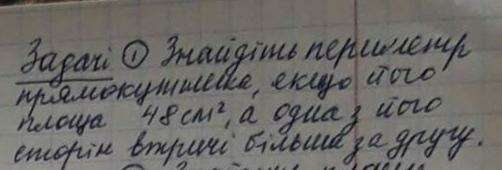 Задачі ① Знайдіть периметр
прямокутника, якщо його
площа 48 см², а одна з його
сторін втричі більша за другу.